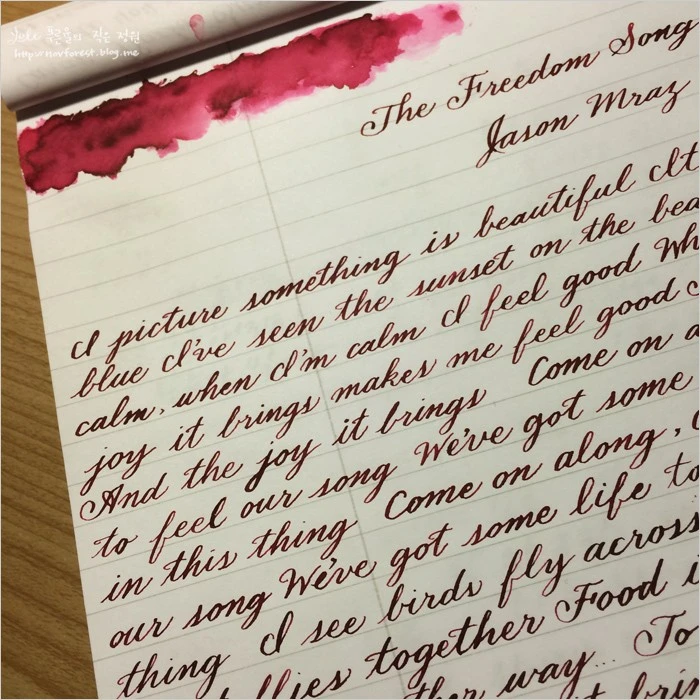 푸른숲의 작은 정원
http://novforest.blog.me
The Freedom Song
Jason Mraz
I picture something is beautiful It
blue I've seen the sunset on the bea
calm, when I'm calm I feel good Wh
joy it brings makes me feel good
And the joy it brings Come on a
to feel our song We've got some
in this thing Come on along,
our song We've got some life to
thing I see birds fly across
llies together Food i
ther way... To
t bri